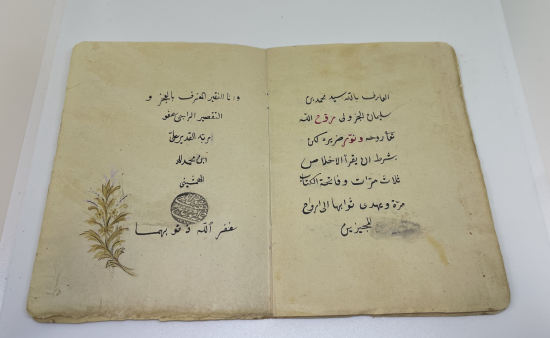 العارف بالله سيد محمد بن
سليمان الجزولي مروح الله
تعالى روحه ونور ضريحه كما
بشرط ان يقرأ الاخلاص
ثلاث مرات و فاتحة الكتاب
مرة ويهدى ثوابها الى ارواح
المجيزين
وانا الفقير المعترف بالعجز و
التقصير الراجى عفو
ربه القدير على
ابن محمد
الحسينى
غفر الله ذنوبهما